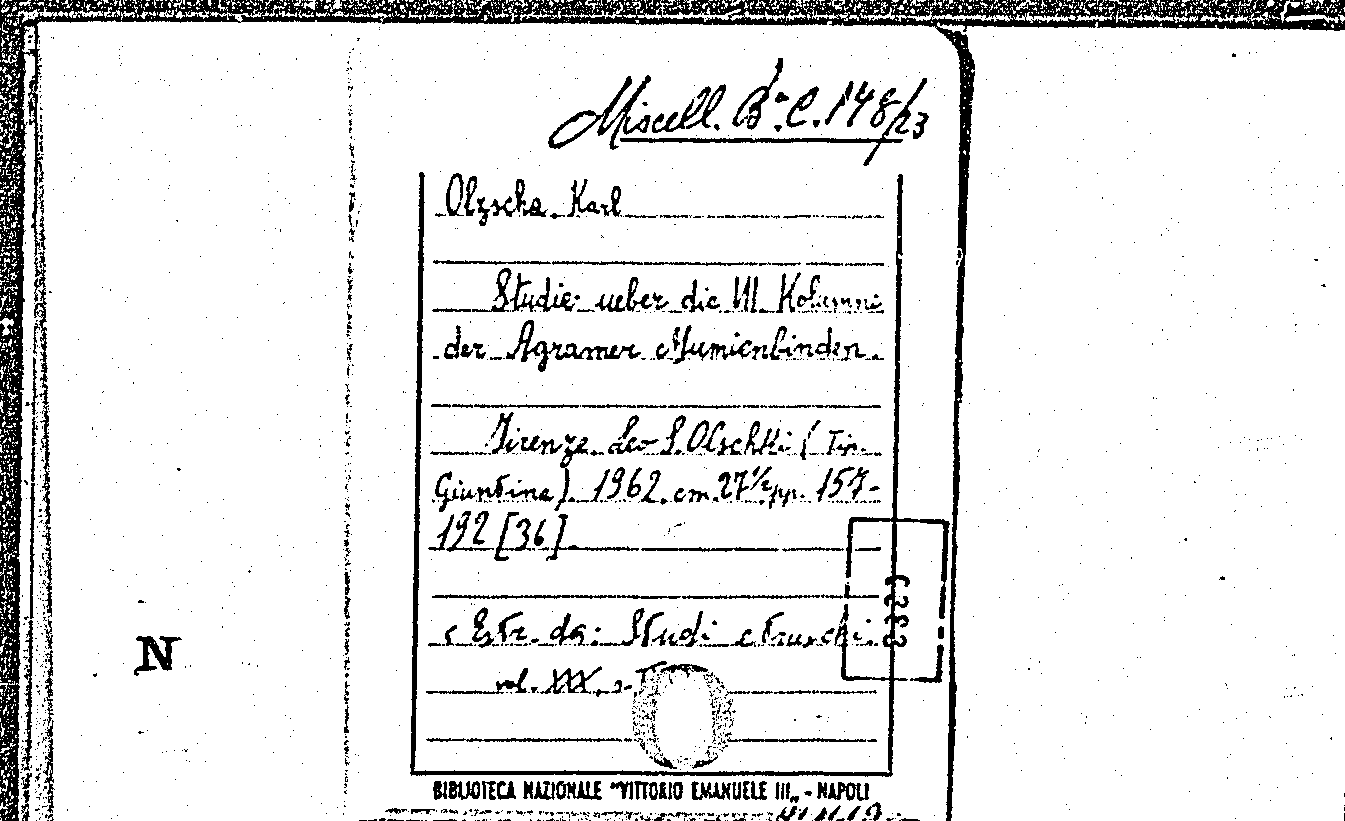 Miscell. Ba. C. 148/23
Olzscha. Karl
Studie ueber die VII. Kolumne
der Agramer Mumienbinden.
Firenze. Leo S. Olschki (Tip.
Giuntina). 1962. cm. 27 1/2 pp. 157-
192 [36].
Estr. da: Studi etruschi.
vol. XXX, s.
N
BIBLIOTECA NAZIONALE "VITTORIO EMANUELE III„ - NAPOLI